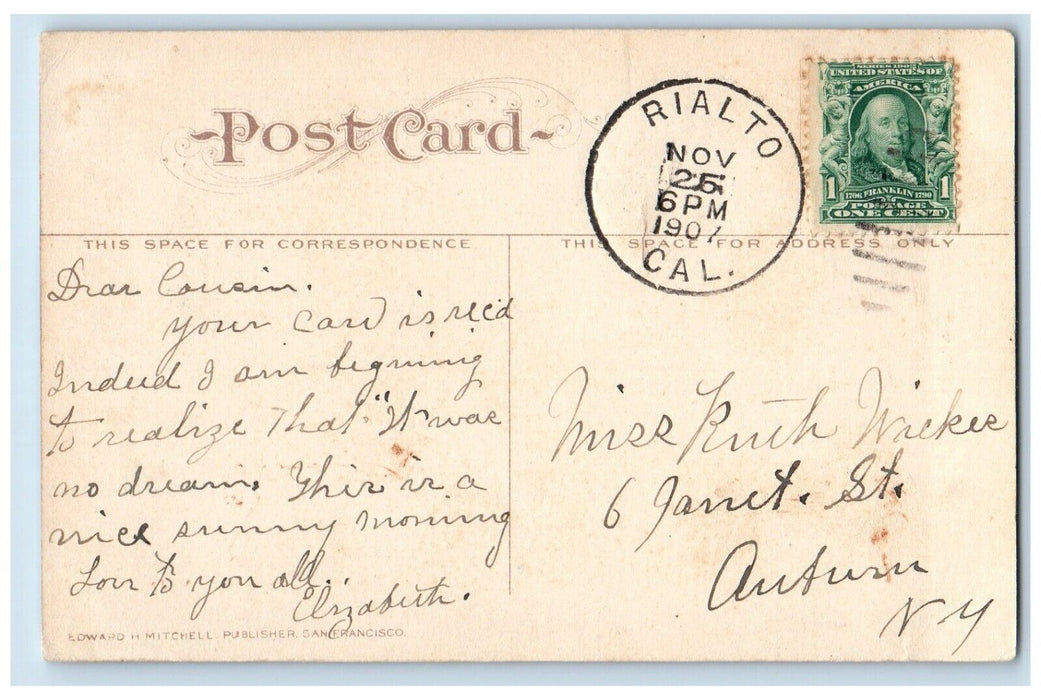 Post Card
RIALTO
NOV
25
6 PM
1907
CAL.
SERIES 1902
UNITED STATES OF
AMERICA
1706 FRANKLIN 1790
1 POSTAGE 1
ONE CENT
THIS SPACE FOR CORRESPONDENCE
THIS SPACE FOR ADDRESS ONLY
Dear Cousin.
your card is rec'd
Indeed I am begining
to realize that "It was
no dream. This is a
nice sunny morning
Love to you all..
Elizabeth.
EDWARD H MITCHELL, PUBLISHER, SAN FRANCISCO.
Miss Ruth
6 Janet. St.
Auburn
N Y